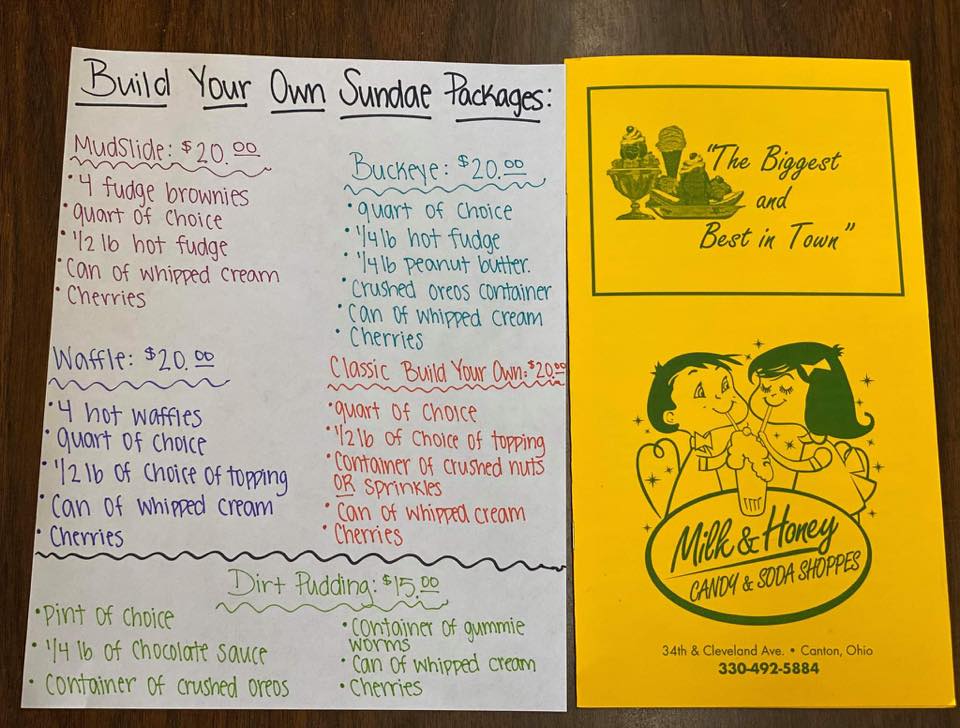 Build Your Own Sundae Packages:
Mudslide: $20.00
• 4 fudge brownies
• quart of choice
• 1/2 lb hot fudge
• Can of whipped cream
• Cherries
Buckeye: $20.00
• quart of choice
• 1/4 lb hot fudge
• 1/4 lb peanut butter.
• Crushed oreos container
• Can of whipped cream
• Cherries
Waffle: $20.00
• 4 hot waffles
• quart of choice
• 1/2 lb of choice of topping
• Can of whipped cream
• Cherries
Classic Build Your Own: $20.00
• quart of choice
• 1/2 lb of choice of topping
• Container of crushed nuts
OR sprinkles
• Can of whipped cream
• Cherries
Dirt Pudding: $15.00
• Pint of choice
• 1/4 lb of chocolate sauce
• Container of crushed oreos
• Container of gummie
worms
• Can of whipped cream
• Cherries
"The Biggest
and
Best in Town"
Milk & Honey
CANDY & SODA SHOPPES
34th & Cleveland Ave. • Canton, Ohio
330-492-5884